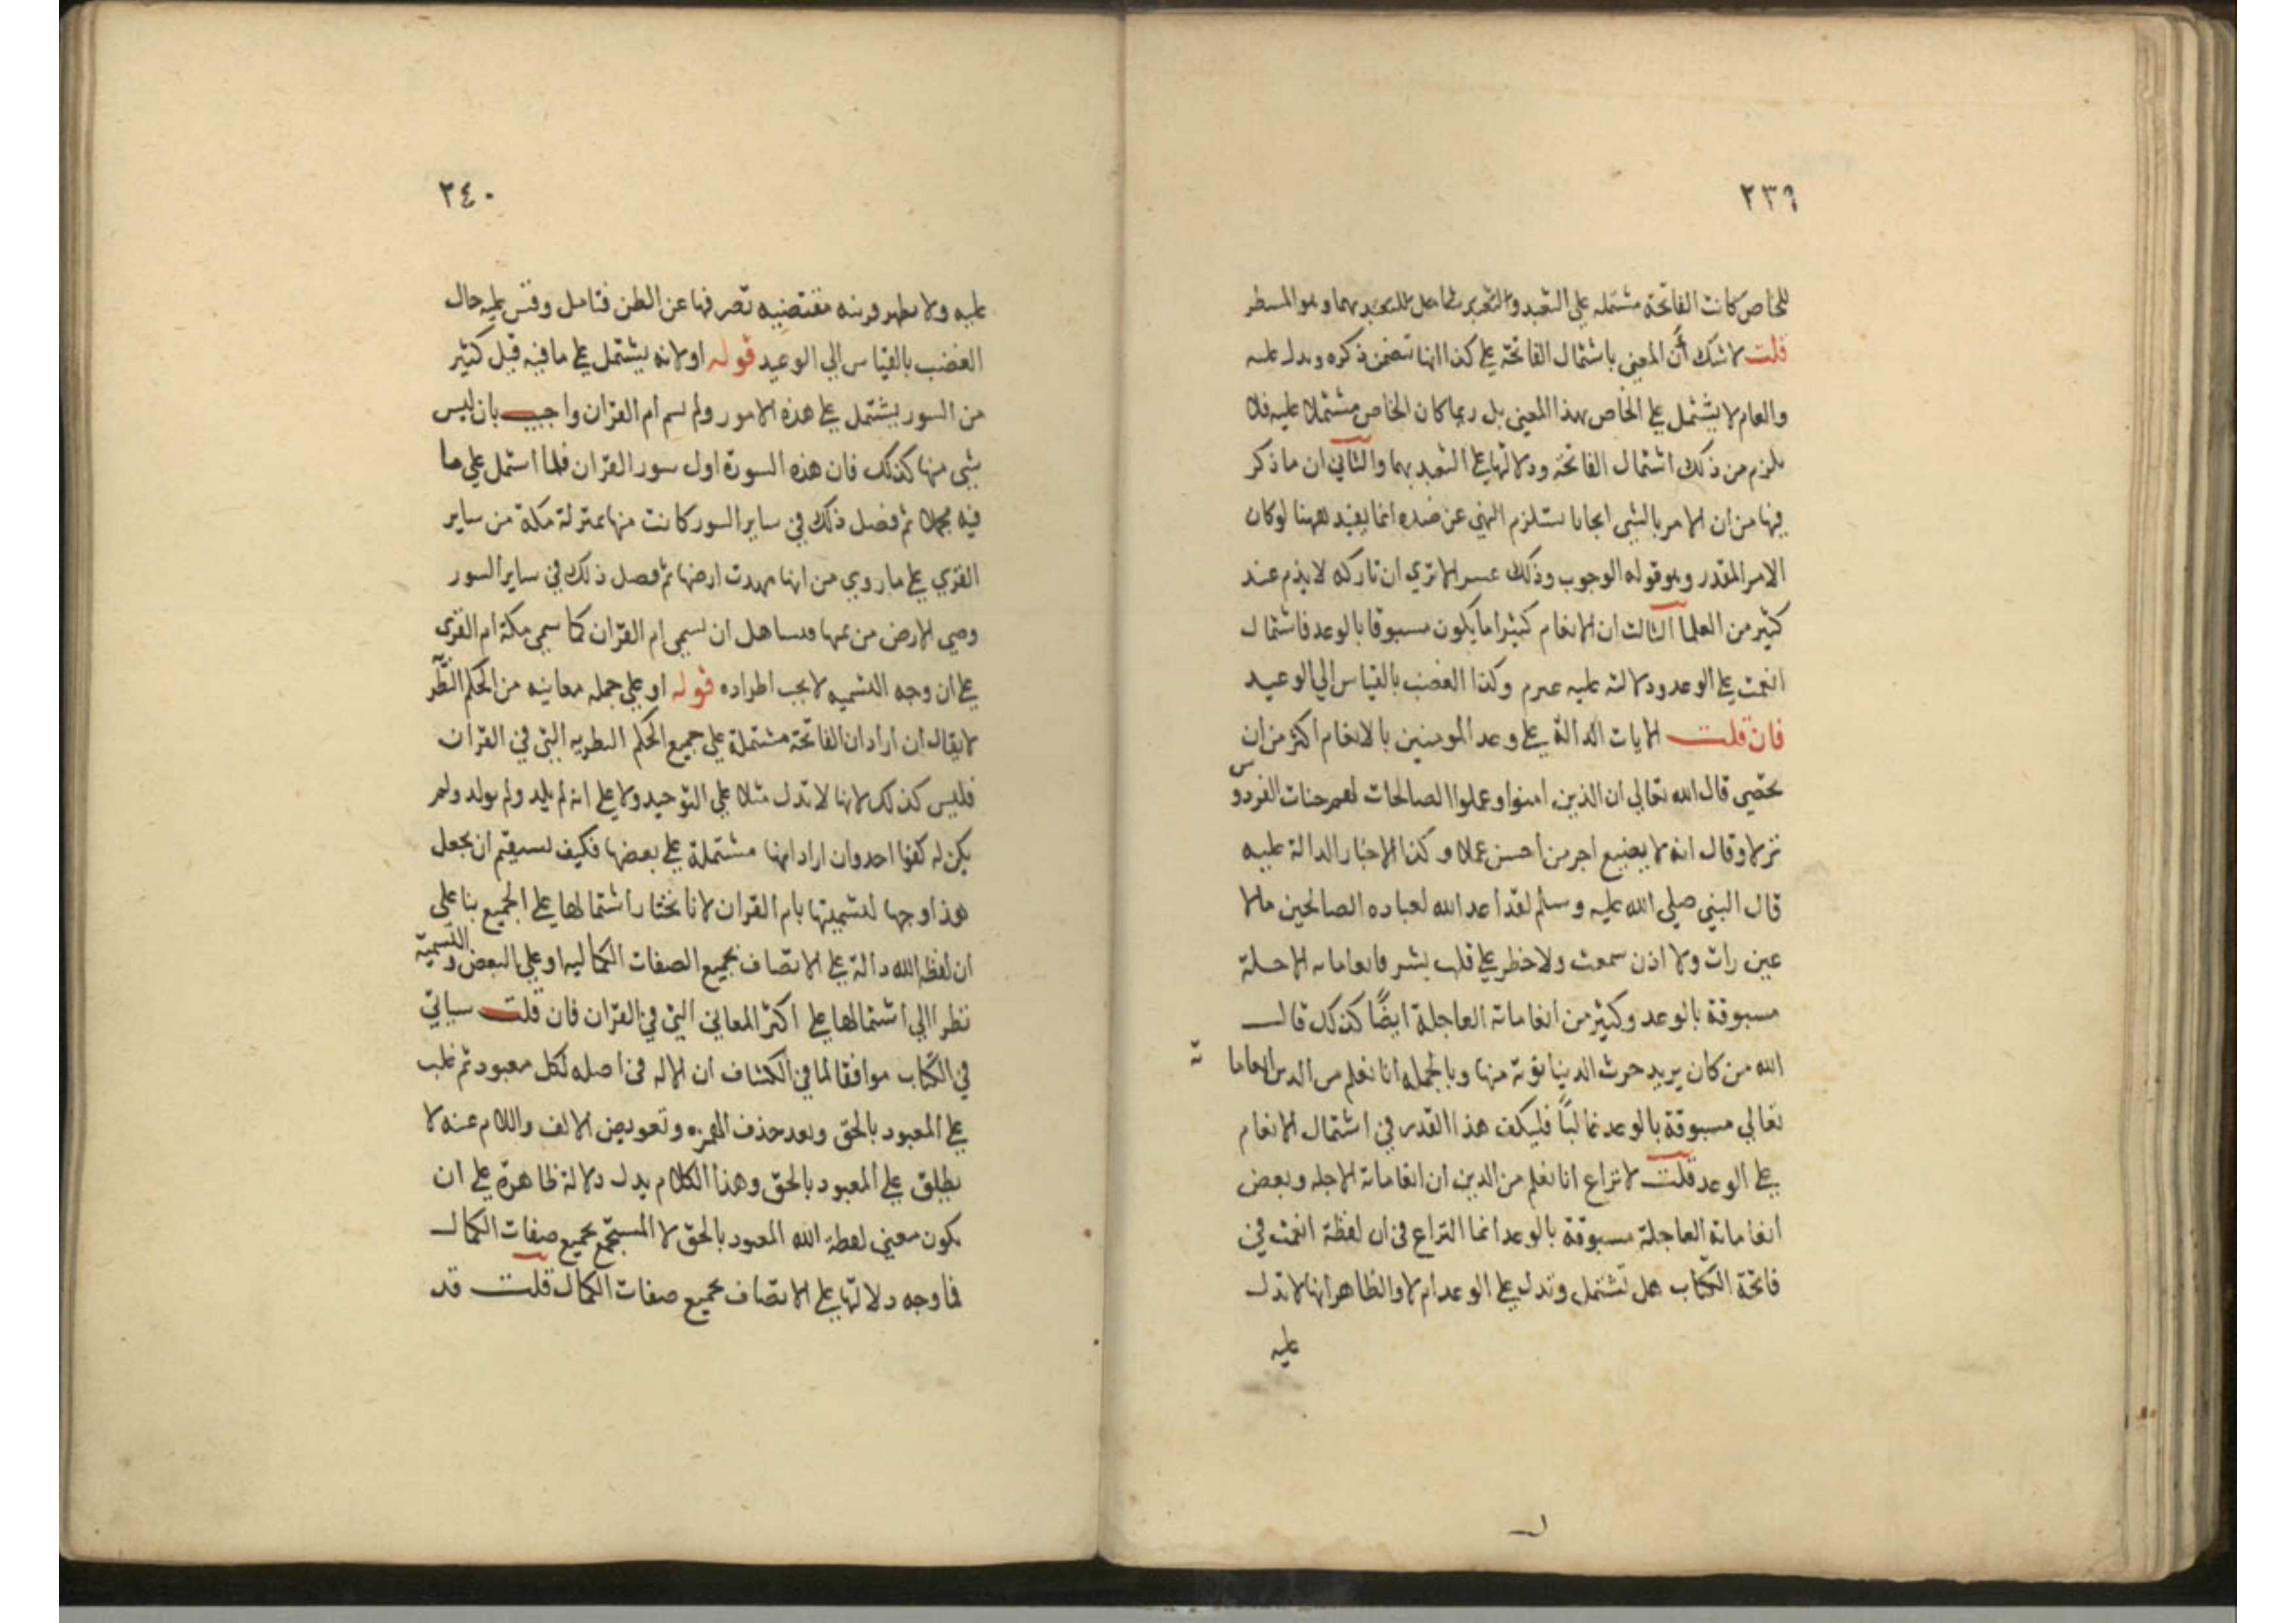 ٢٣٩
للخاص كانت الفاتحة مشتمله علي التعبد و
قلت لا شك أن المعني باشتمال الفاتحة علي كذا انها تتضمن ذكره ويدل عليه
والعام لا يشتمل علي الخاص بهذا المعني بل ربما كان الخاص مشتملا عليه فلا
يلزم من ذلك اشتمال الفاتحة ودلالتها علي التعبد بهما والثاني ان ما ذكر
فيها من ان الامر بالشي ايجابا يستلزم النهي عن ضده انما يفيد ههنا لو كان
الامر المقدر وهو قوله الوجوب وذلك الا تري ان تاركه لا يذم عند
كثير من العلما الثالث ان الانعام كثيرا ما يكون مسبوقا بالوعد فاشتمال
انعمت علي الوعد ودلالته عليه وكذا الغضب بالقياس الي الوعيد
فان قلت الايات الدالة علي وعد المومنين بالانعام اكثر من ان
تحصي قال الله تعالي ان الذين امنوا وعملوا الصالحات لهم جنات الفردوس
نزلا وقال انه لا يضيع اجر من أحسن عملا وكذا الاخبار الدالة عليه
قال النبي صلي الله عليه وسلم لقد أعد الله لعباده الصالحين مالا
عين رات ولا اذن سمعت ولا خطر علي قلب بشر فانعاماته الاجلة
مسبوقة بالوعد وكثير من انعاماته العاجلة ايضًا كذلك قال
الله من كان يريد حرث الدنيا نوته منها وبالجمله انا نعلم من الدين انعاماته
تعالي مسبوقة بالوعد غالبًا فليكف هذا القدر في اشتمال الانعام
علي الوعد قلت لا نزاع انا نعلم من الدين ان انعاماته الاجله وبعض
انعاماته العاجلة مسبوقة بالوعد انما النزاع في ان لفظة انعمت في
فاتحة الكتاب هل تشتمل وتدل علي الوعد ام لا والظاهر انها لا تدل
عليه
٢٤٠
عليه ولا يظهر قرينه مقتضيه تصرفها عن الظن فتامل وقس عليه حال
الغضب بالقياس الي الوعيد قوله او لانه يشتمل علي ما فيه قبل كثير
من السور يشتمل علي هذه الامور ولم يسم ام القران واجيب بان ليس
شي منها كذلك فان هذه السورة اول سور القران فلما اشتمل علي ما
فيه مجملا ثم فصل ذلك في ساير السور كانت منها بمنزلة مكة من ساير
القري علي ما روي من انها مهدت ارضها ثم فصل ذلك في ساير السور
ودحي الارض من تحتها ان تسمي ام القران كما سمي مكة ام القري
علي ان وجه التسميه لا يجب اطراده قوله او علي جمله معانيه من الحكم النظريه
لا يقال ان اراد ان الفاتحة مشتملة علي جميع الحكم النظريه التي في القران
فليس كذلك لانها لا تدل مثلا علي التوحيد ولا علي انه لم يلد ولم يولد ولم
يكن له كفوا احد وان اراد انها مشتملة علي بعضها فكيف يستقيم ان يجعل
هذا وجها لتسميتها بام القران لانا نختار اشتمالها علي الجميع بنا علي
ان لفظ الله دالة علي الاتصاف بجميع الصفات الكماليه او علي البعض والتسمية
نظرا الي اشتمالها علي اكثر المعاني التي في القران فان قلت سياتي
في الكتاب موافقا لما في الكشاف ان الاله في اصله لكل معبود ثم غلب
علي المعبود بالحق وبعد حذف الهمزه وتعويض الالف واللام عنه لا
يطلق علي المعبود بالحق وهذا الكلام يدل دلالة ظاهرة علي ان
يكون معني لفظة الله المعبود بالحق لا المستجمع بجميع صفات الكمال
فما وجه دلالتها علي الاتصاف بجميع صفات الكمال قلت قد